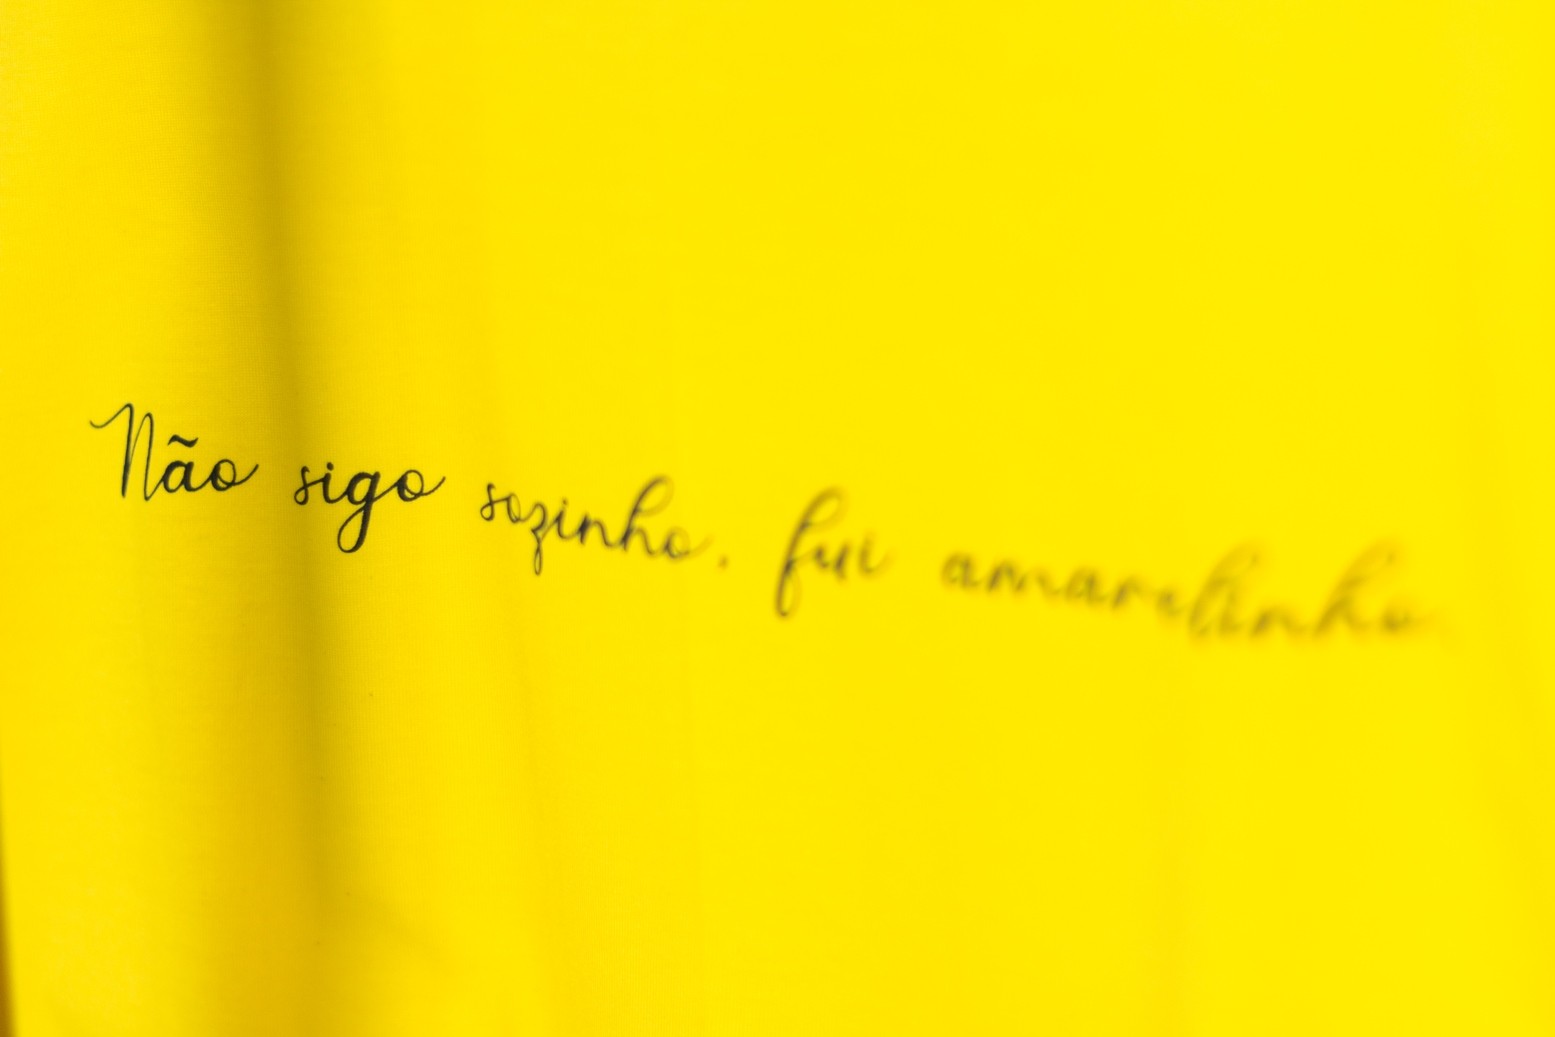 Não sigo sozinho, fui amarelinho.